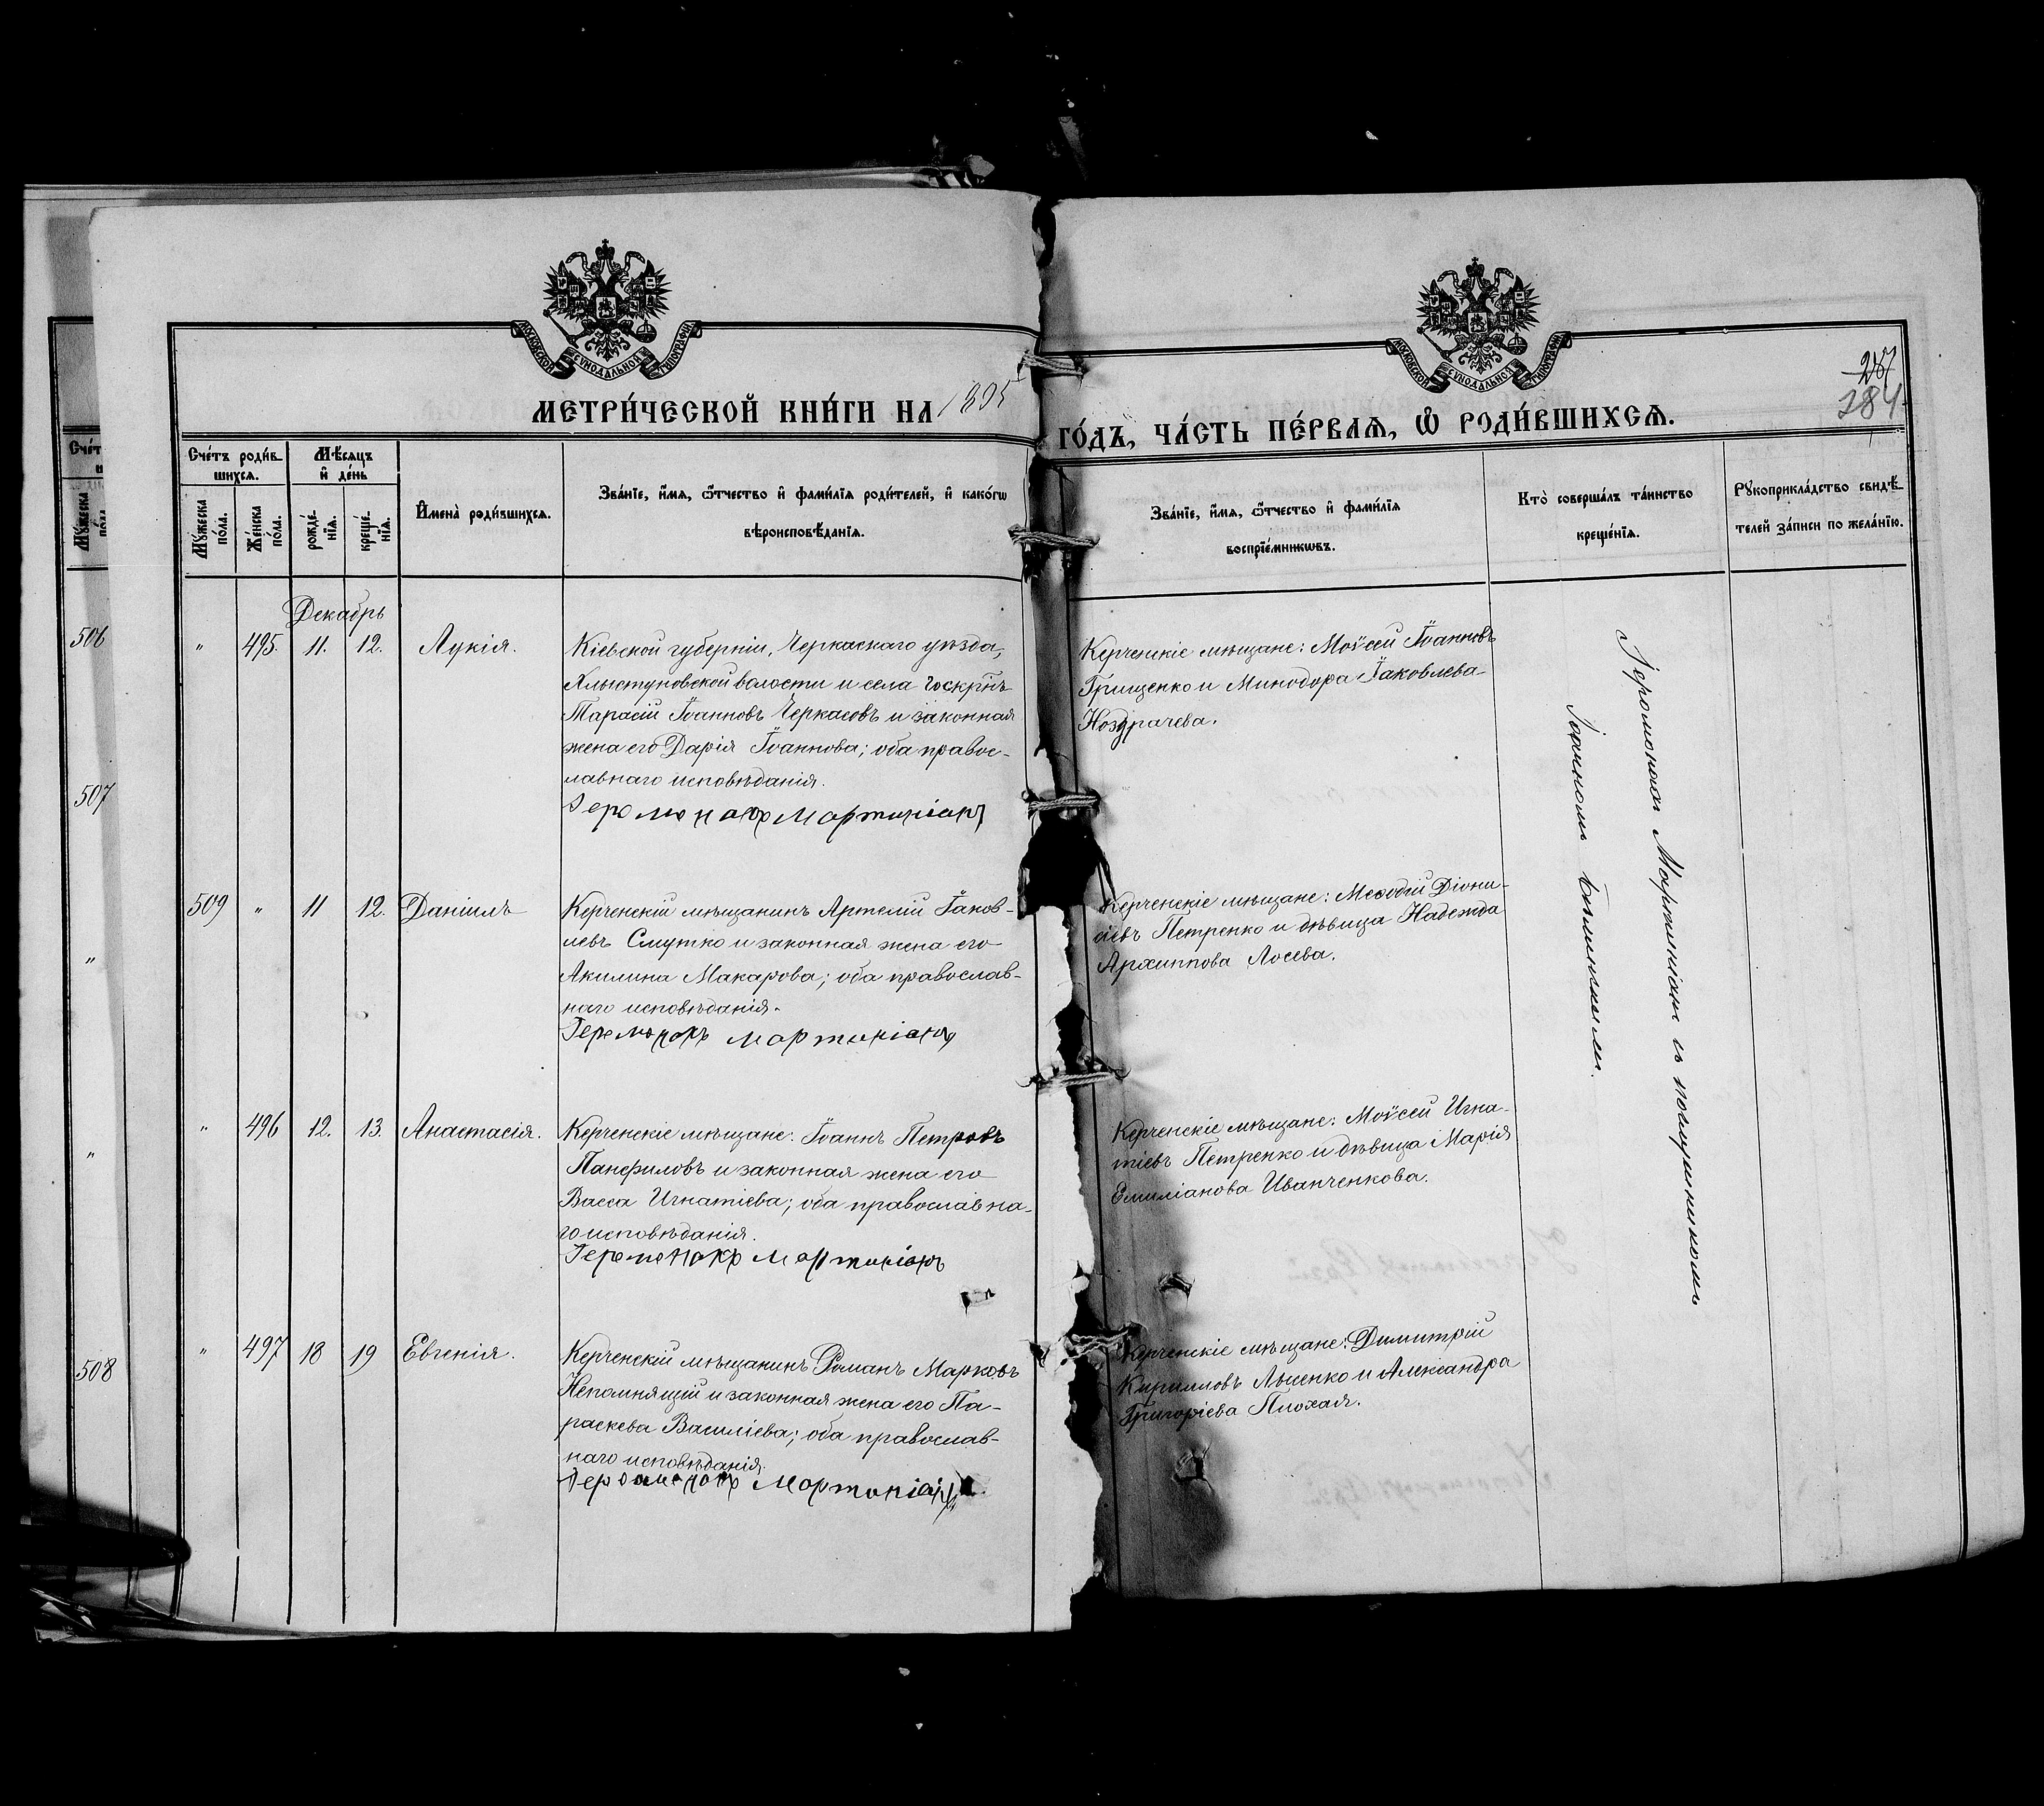 МОСКОВСКОЙ СУНОДАЛЬНОЙ ТИПОГРАФІИ
МОСКОВСКОЙ СУНОДАЛЬНОЙ ТИПОГРАФІИ
МЕТРИ́ЧЕСКОЙ КНИ́ГИ НА 1895
ГО́ДЪ, ЧА́СТЬ ПЕ́РВАѦ, Ѽ РОДИ́ВШИХСѦ.
284.
Сче́тъ роди́в-
шихсѧ.
Мѣ́сѧцъ
и҆ де́нь
Мꙋ́жеска
по́ла.
Же́нска
по́ла.
рожде́-
нїѧ.
креще́-
нїѧ.
И҆мена̀ роди́вшихсѧ.
Зва́нїе, и҆́мѧ, ѻ҆́тчество и҆ фами́лїѧ роди́телей, и҆ како́гѡ
вѣроисповѣ́данїѧ.
Зва́нїе, и҆́мѧ, ѻ҆́тчество и҆ фами́лїѧ
воспрїе́мникѡвъ.
Кто̀ соверша́лъ та́инство
креще́нїѧ.
Рꙋкоприкла́дство свидѣ́-
телей за́писи по жела́нїю.
506
507
"
"
508
Декабрь
" 495. 11. 12. Лукія.
Кіевской губерніи, Черкаскаго уѣзда,
Хлыстуновской волости и села
Тарасій Іоанновъ Черкасовъ и законная
жена его Дарія Іоаннова; оба правос-
лавнаго исповѣданія.
Іеромонахъ Мартиніанъ
Керченскіе мѣщане: Моѵсей Іоанновъ
Грищенко и Минодора Іаковлева
Ноздрачева.
Іеромонахъ Мартиніанъ съ послушникомъ
Іоанномъ
509 " 11 12. Даніилъ
Керченскій мѣщанинъ Артемій Іаков-
левъ Смутко и законная жена его
Акилина Макарова; оба православ-
наго исповѣданія.
Іеромонахъ Мартиніанъ
Керченскіе мѣщане: Меѳодій Діони-
сіевъ Петренко и дѣвица Надежда
Архиппова Лосева.
" 496 12. 13. Анастасія.
Керченскіе мѣщане: Іоаннъ Петровъ
Панфиловъ и законная жена его
Васса Игнатіева; оба православна-
го исповѣданія.
Іеромонахъ Мартиніанъ
Керченскіе мѣщане: Моѵсей Игна-
тіевъ Петренко и дѣвица Марія
Емиліанова Иванченкова.
" 497 18 19 Евгенія.
Керченскій мѣщанинъ Романъ Марковъ
Непомнящій и законная жена его Па-
раскева Василіева; оба православ-
наго исповѣданія.
Іеромонахъ Мартиніанъ
Керченскіе мѣщане: Димитрій
Кирилловъ Лысенко и Александра
Григоріева Плохая.